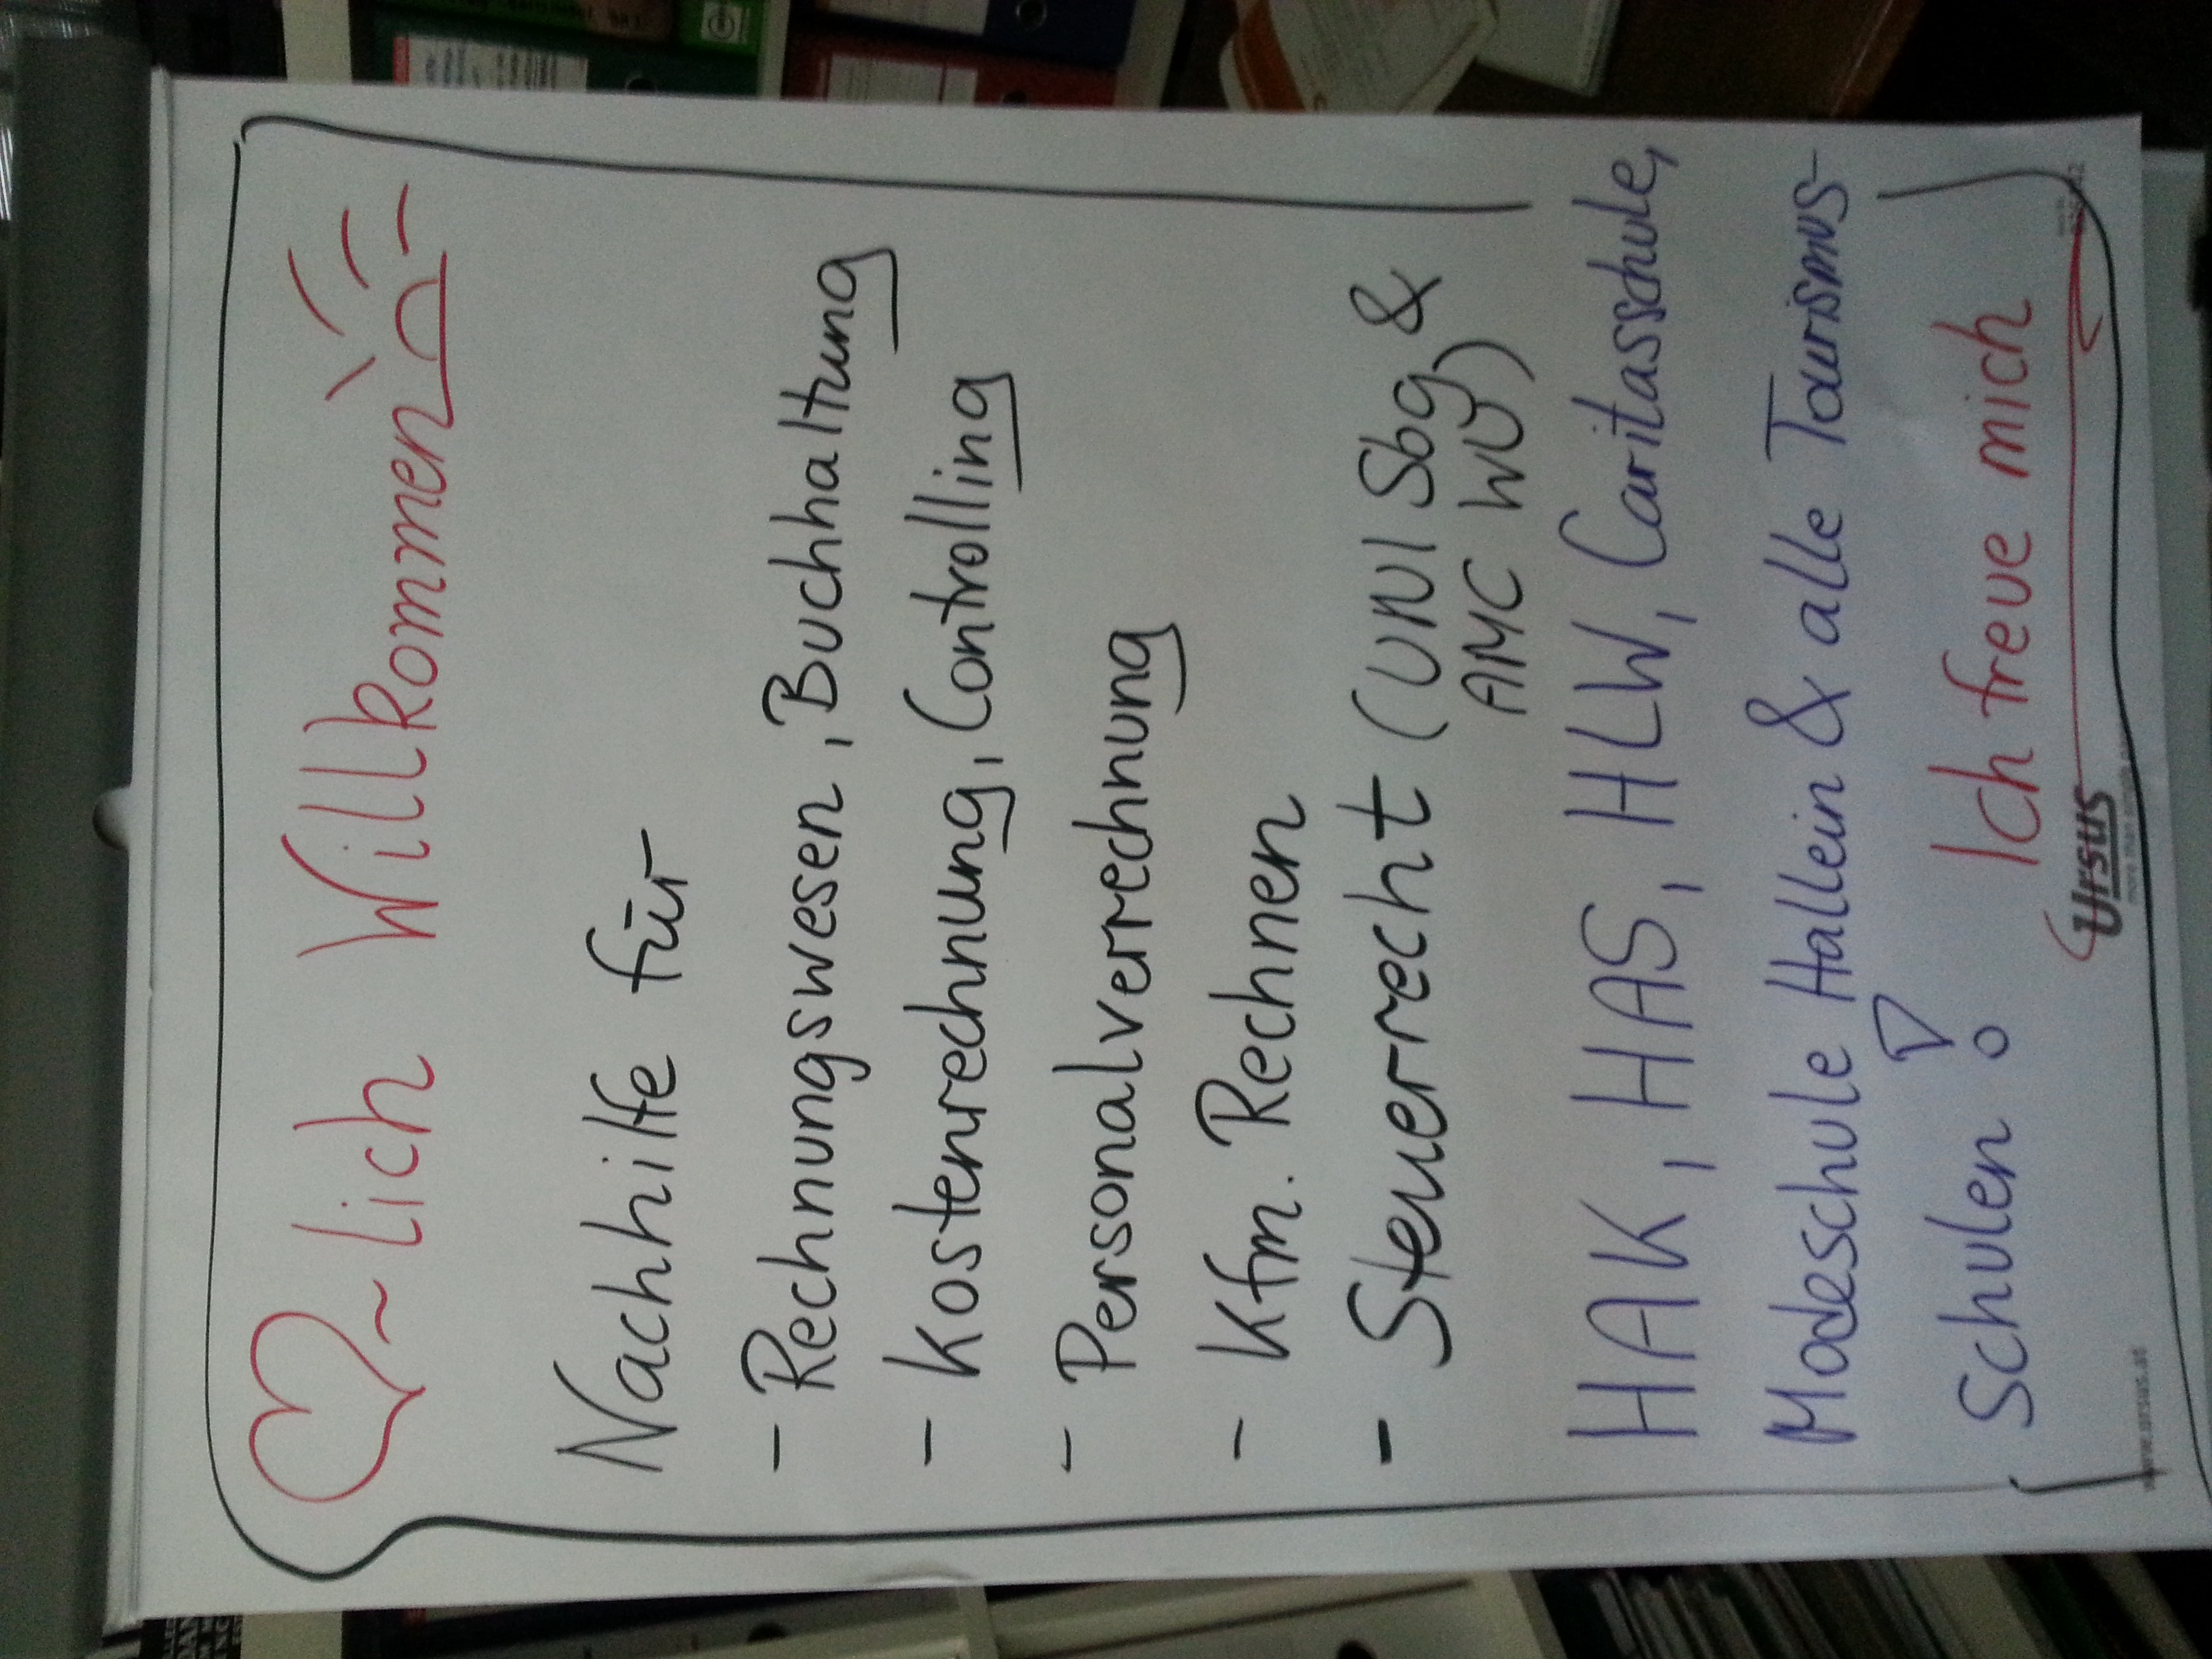 ♡~lich Willkommen
Nachhilfe für
- Rechnungswesen, Buchhaltung
- Kostenrechnung, Controlling
- Personalverrechnung
- Kfm. Rechnen
- Steuerrecht (UNI Sbg &
AMC WU)
HAK, HAS, HLW, Caritasschule,
Modeschule Hallein & alle Tourismus-
Schulen!
Ich freue mich
Ursus
www.ursus.at